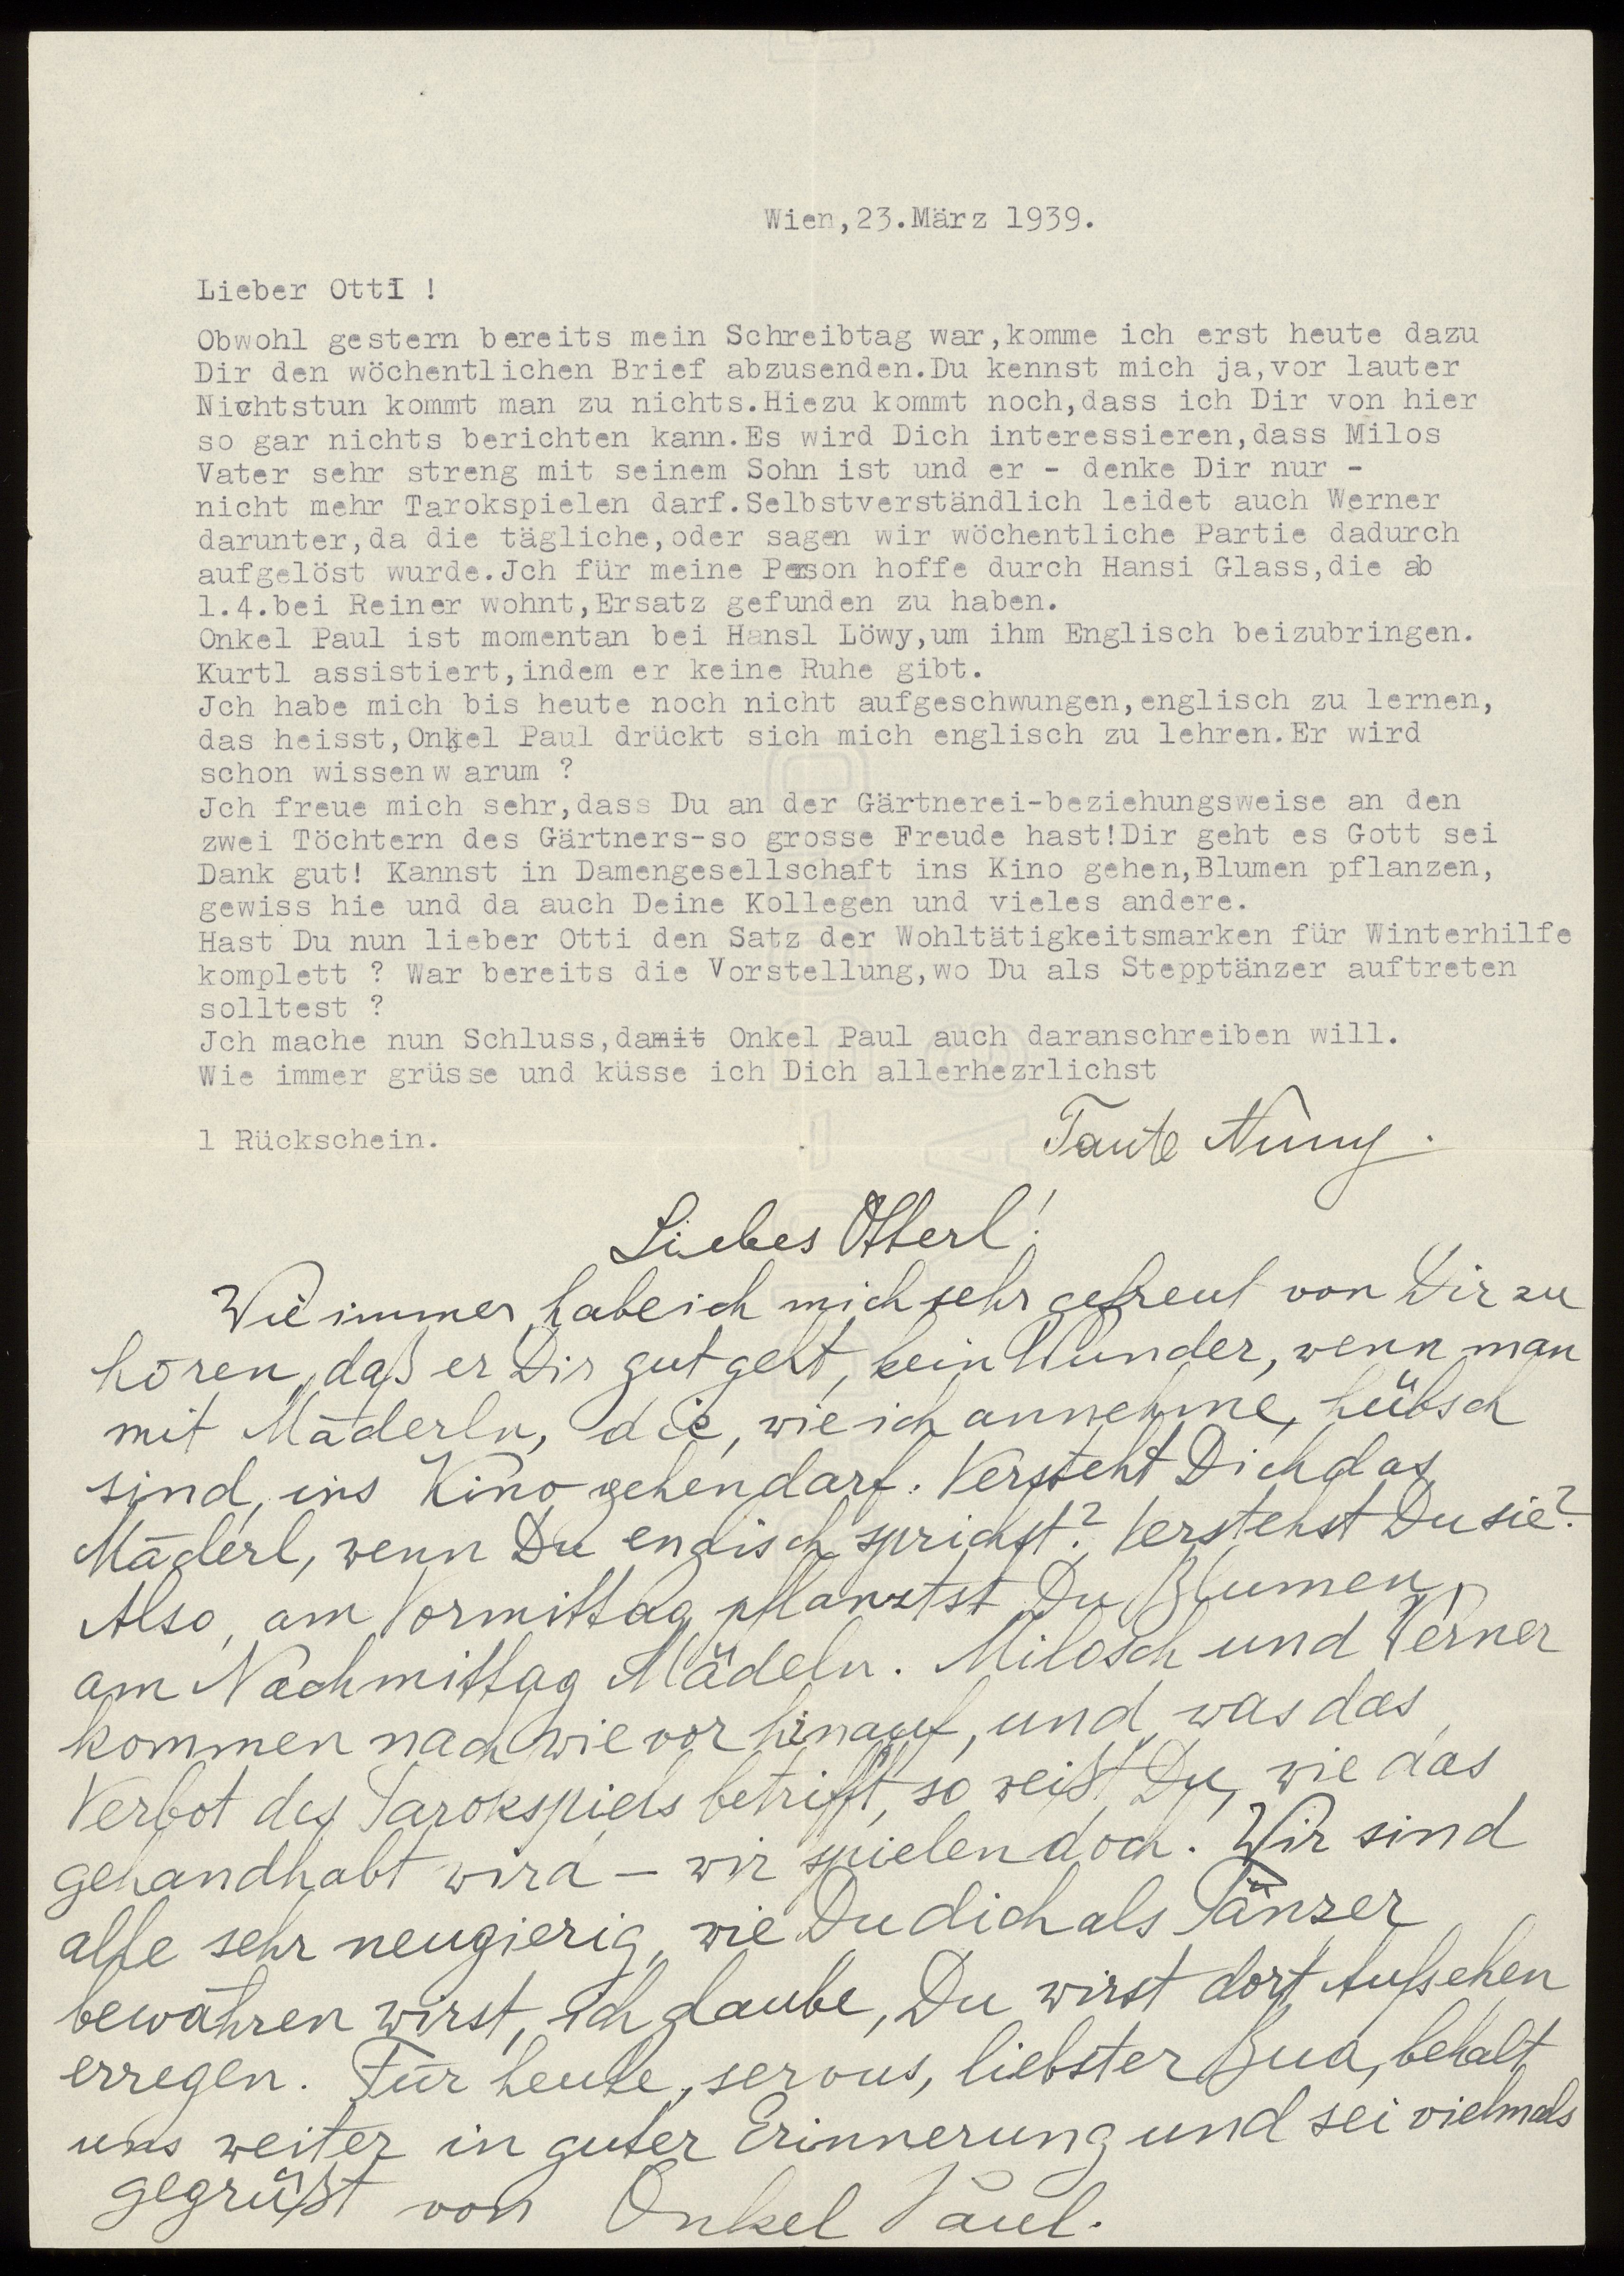 Wien,23.März 1939.
Lieber Otti !
Obwohl gestern bereits mein Schreibtag war,komme ich erst heute dazu
Dir den wöchentlichen Brief abzusenden.Du kennst mich ja,vor lauter
Nichtstun kommt man zu nichts.Hiezu kommt noch,dass ich Dir von hier
so gar nichts berichten kann.Es wird Dich interessieren,dass Milos
Vater sehr streng mit seinem Sohn ist und er - denke Dir nur -
nicht mehr Tarokspielen darf.Selbstverständlich leidet auch Werner
darunter,da die tägliche,oder sagen wir wöchentliche Partie dadurch
aufgelöst wurde.Jch für meine Person hoffe durch Hansi Glass,die ab
1.4.bei Reiner wohnt,Ersatz gefunden zu haben.
Onkel Paul ist momentan bei Hansl Löwy,um ihm Englisch beizubringen.
Kurtl assistiert,indem er keine Ruhe gibt.
Jch habe mich bis heute noch nicht aufgeschwungen,englisch zu lernen,
das heisst,Onkel Paul drückt sich mich englisch zu lehren.Er wird
schon wissen w arum ?
Jch freue mich sehr,dass Du an der Gärtnerei-beziehungsweise an den
zwei Töchtern des Gärtners-so grosse Freude hast!Dir geht es Gott sei
Dank gut! Kannst in Damengesellschaft ins Kino gehen,Blumen pflanzen,
gewiss hie und da auch Deine Kollegen und vieles andere.
Hast Du nun lieber Otti den Satz der Wohltätigkeitsmarken für Winterhilfe
komplett ? War bereits die Vorstellung,wo Du als Stepptänzer auftreten
solltest ?
Jch mache nun Schluss,damit Onkel Paul auch daranschreiben will.
Wie immer grüsse und küsse ich Dich allerhezrlichst
1 Rückschein.
Tante Nuny.
Liebes Otterl!
Wie immer habe ich mich sehr gefreut von Dir zu
hören, daß er Dir gut geht, kein Wunder, wenn man
mit Mäderln, die, wie ich annehme, hübsch
sind, ins Kino gehen darf. Versteht Dich das
Mäderl, wenn Du englisch sprichst? Verstehst Du sie?
Also, am Vormittag pflanztst Du Blumen,
am Nachmittag Mädeln. Milosch und Werner
kommen nach wie vor hinauf, und was das
Verbot des Tarokspiels betrifft, so weißt Du, wie das
gehandhabt wird – wir spielen doch. Wir sind
alle sehr neugierig, wie Du dich als Tänzer
bewähren wirst, ich glaube, Du wirst dort Aufsehen
erregen. Für heute, servus, liebster Bua, behalt
uns weiter in guter Erinnerung und sei vielmals
gegrüßt von Onkel Paul.